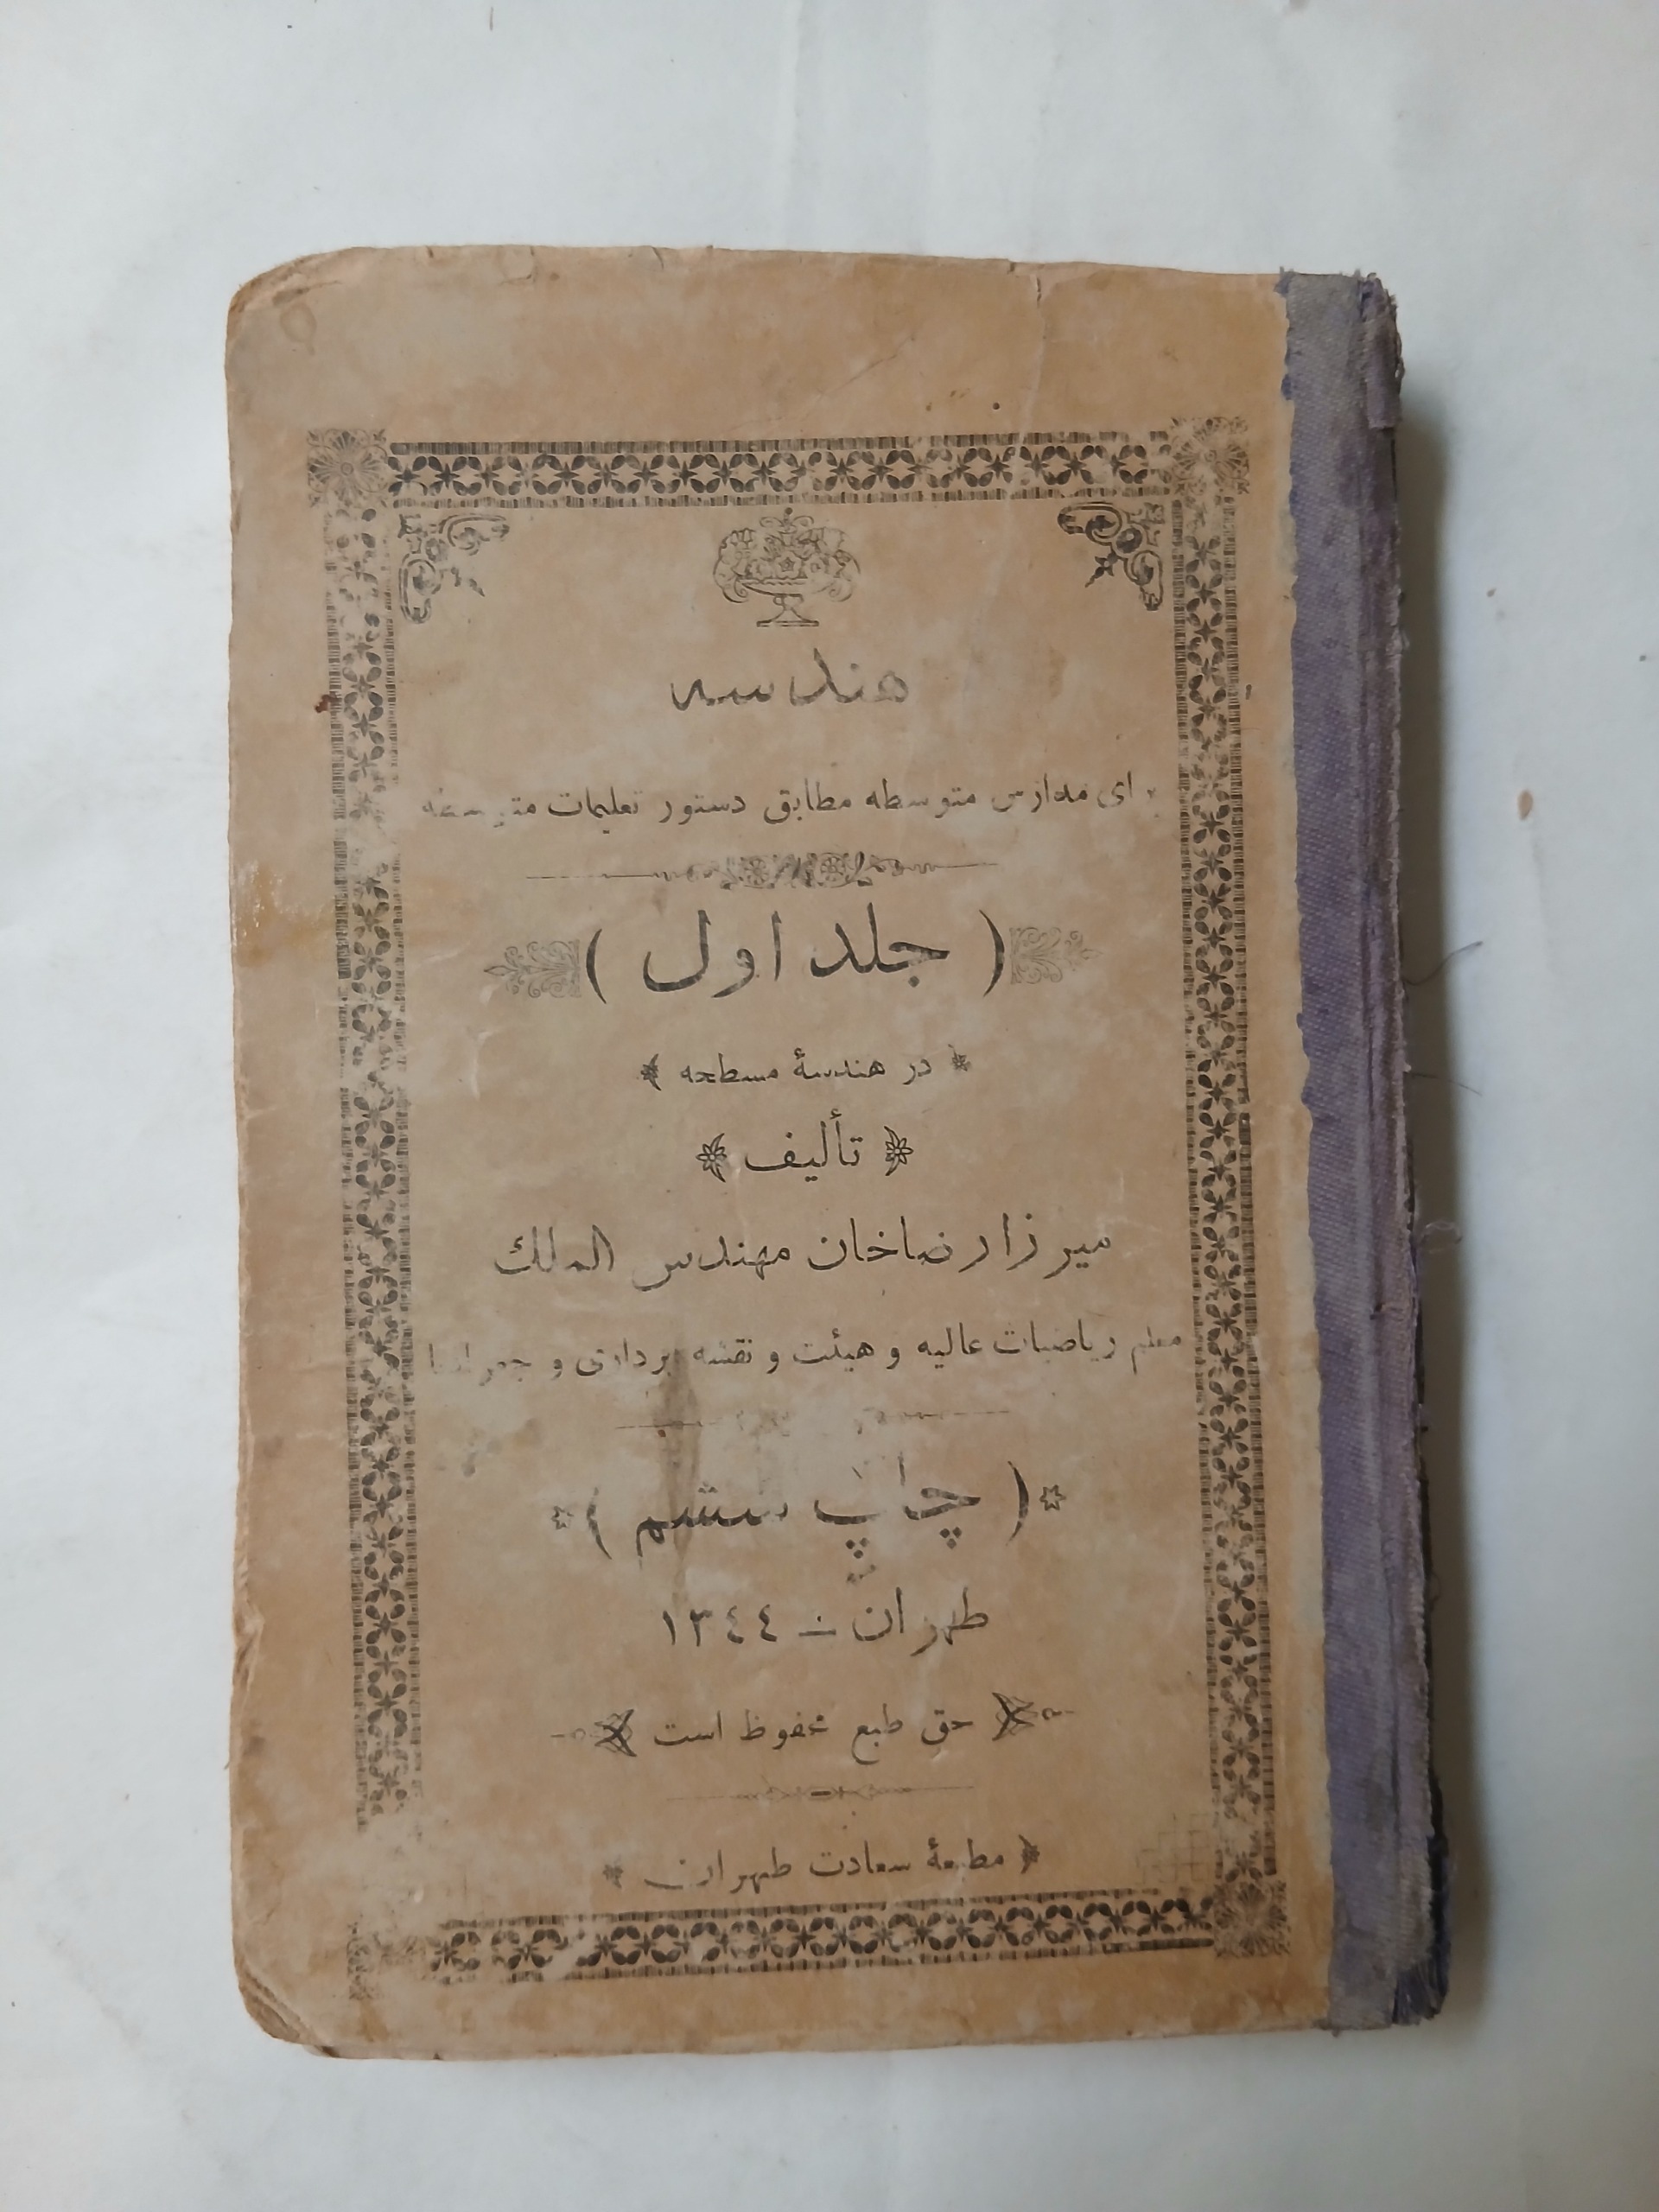 هندسه
برای مدارس متوسطه مطابق دستور تعلیمات متوسطه
( جلد اول )
در هندسهٔ مسطحه
تألیف
میرزا رضاخان مهندس الملك
معلم ریاضیات عالیه و هیئت و نقشه برداری و جغرافیا
( چاپ ششم )
طهران — ١٣٤٤
حق طبع محفوظ است
مطبعهٔ سعادت طهران